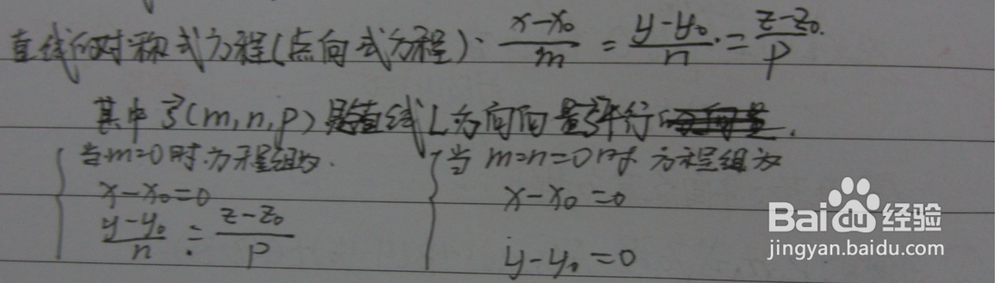 直线的对称式方程(点向式方程). x-x₀/m = y-y₀/n = z-z₀/p
其中 s⃗(m,n,p) 是直线L方向向量平行
当m=0时.方程组为.
x-x₀=0
y-y₀/n = z-z₀/p
当m=n=0时 方程组为
x-x₀=0
y-y₀=0
Baidu经验
jingyan.baidu.com